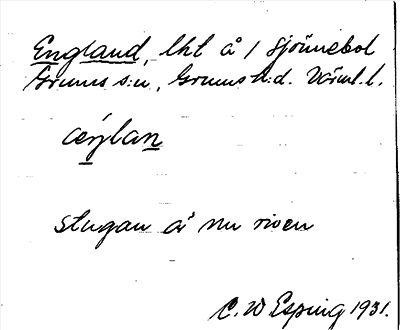 England, lht å 1 Sjönnebol
Grums s:n, Grums h:d. Värml. l.
æŋlan
stugan är nu riven
C. W Esping 1931.